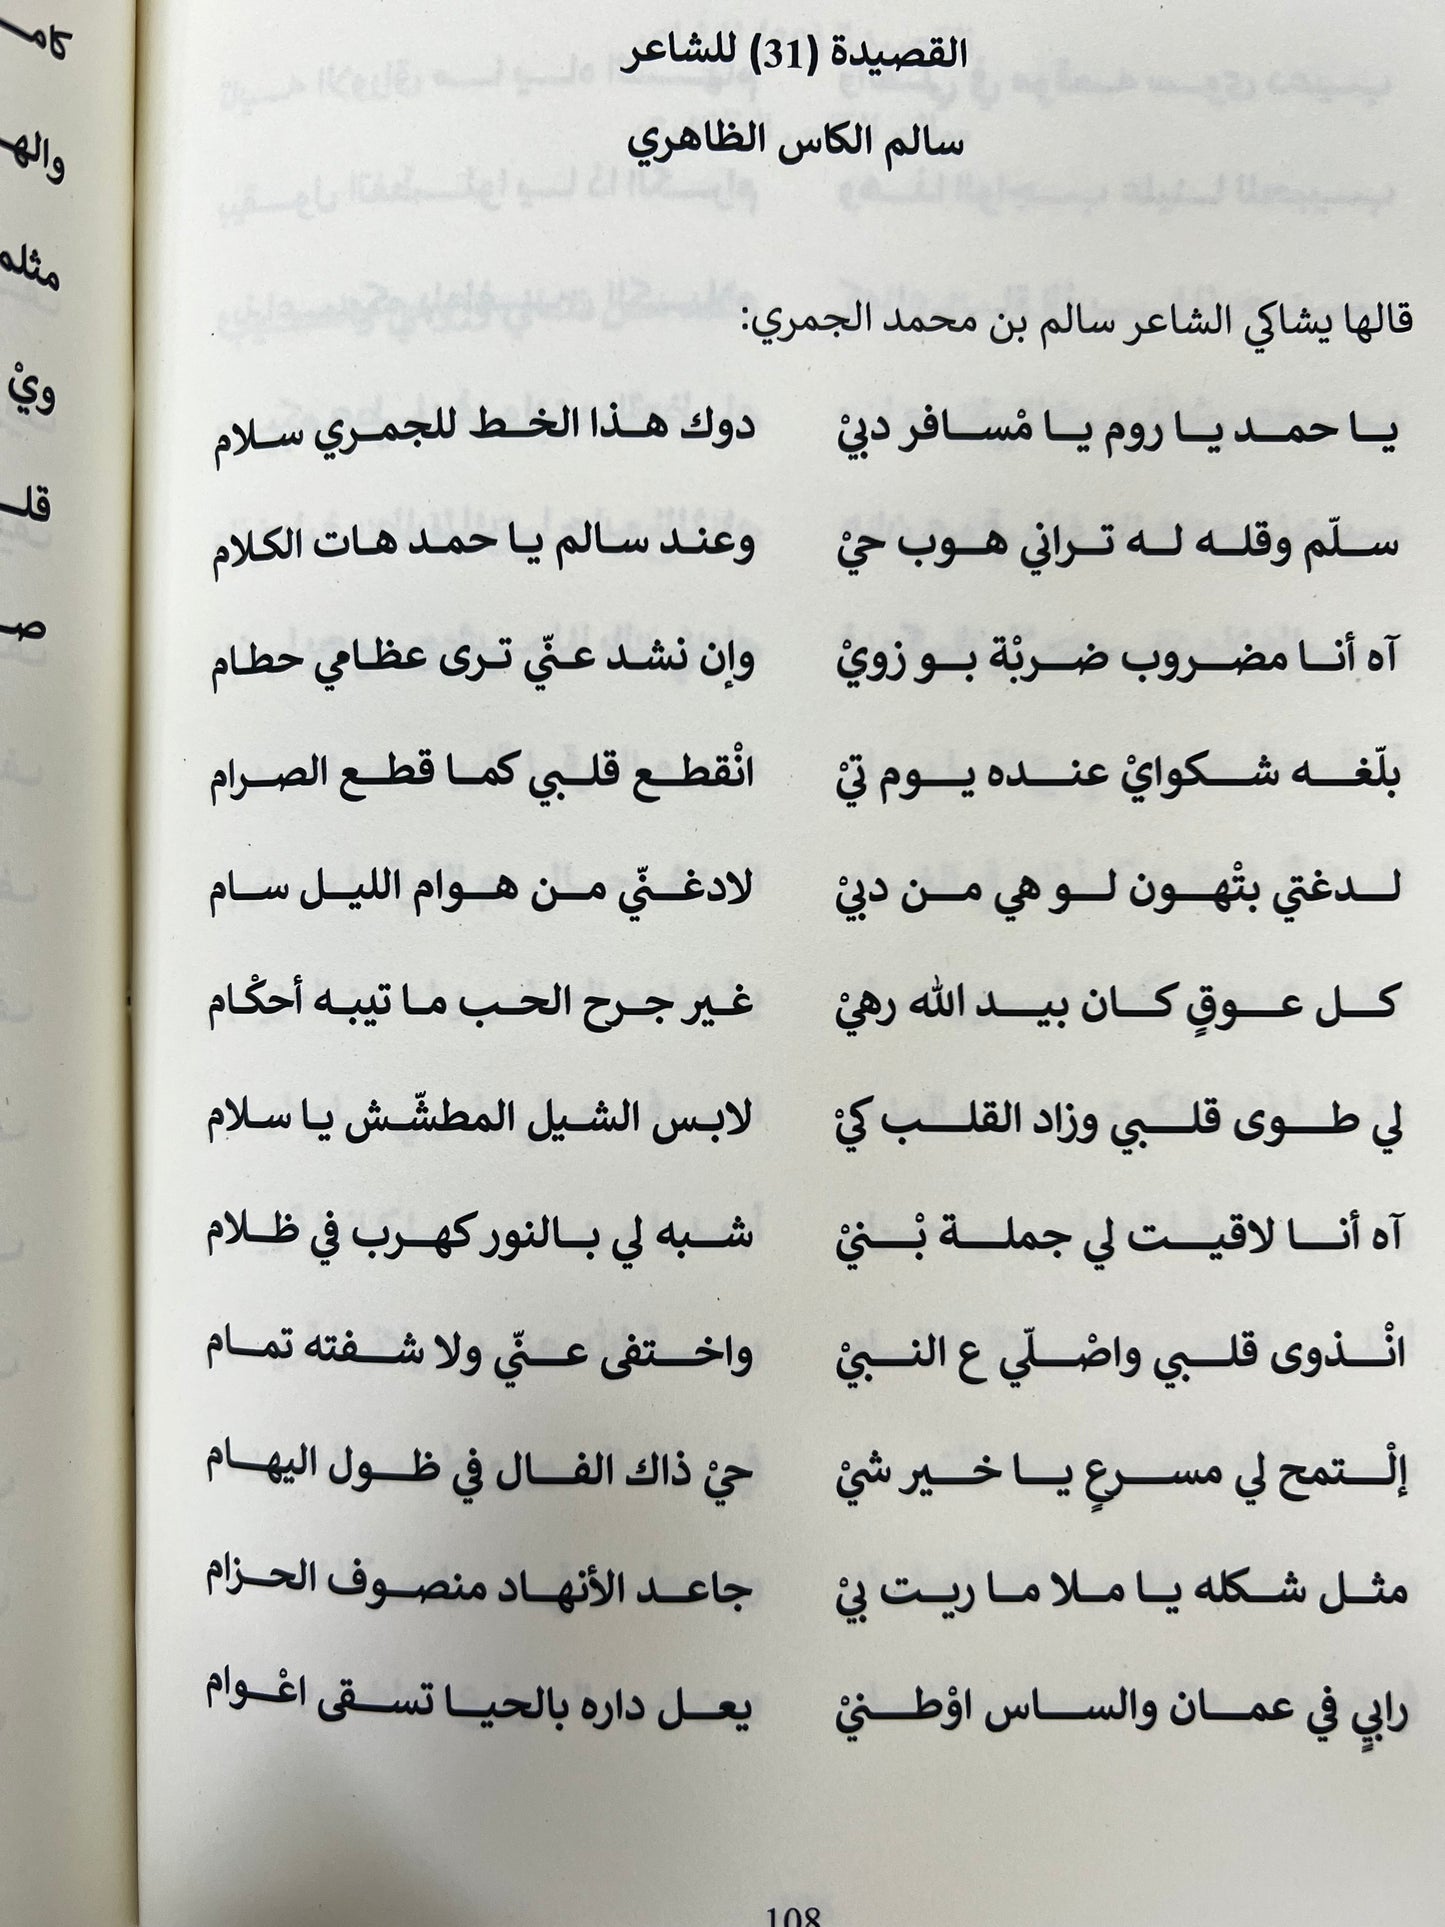 القصيدة (31) للشاعر
سالم الكاس الظاهري
قالها يشاكي الشاعر سالم بن محمد الجمري:
يا حمد يا روم يا مْسافر دبيْ دوك هذا الخط للجمري سلام
سلّم وقله له تراني هوب حيْ وعند سالم يا حمد هات الكلام
آه أنا مضروب ضربْة بو زويْ وإن نشد عنّي ترى عظامي حطام
بلّغه شكوايْ عنده يوم تيْ انْقطع قلبي كما قطع الصرام
لدغتي بتْهون لو هي من دبيْ لادغنّي من هوام الليل سام
كل عوقٍ كان بيد الله رهيْ غير جرح الحب ما تيبه أحكْام
لي طوى قلبي وزاد القلب كيْ لابس الشيل المطشّش يا سلام
آه أنا لاقيت لي جملة بْنيْ شبه لي بالنور كهرب في ظلام
انْذوى قلبي واصْلّي ع النبيْ واختفى عنّي ولا شفته تمام
إلْتمح لي مسرعٍ يا خير شيْ حيْ ذاك الفال في ظول اليهام
مثل شكله يا ملا ما ريت بيْ جاعد الأنهاد منصوف الحزام
رابيٍ في عمان والساس اوْطنيْ يعل داره بالحيا تسقى اعْوام
108
والهـ
مثلم
ويْ
قلـ
صـ